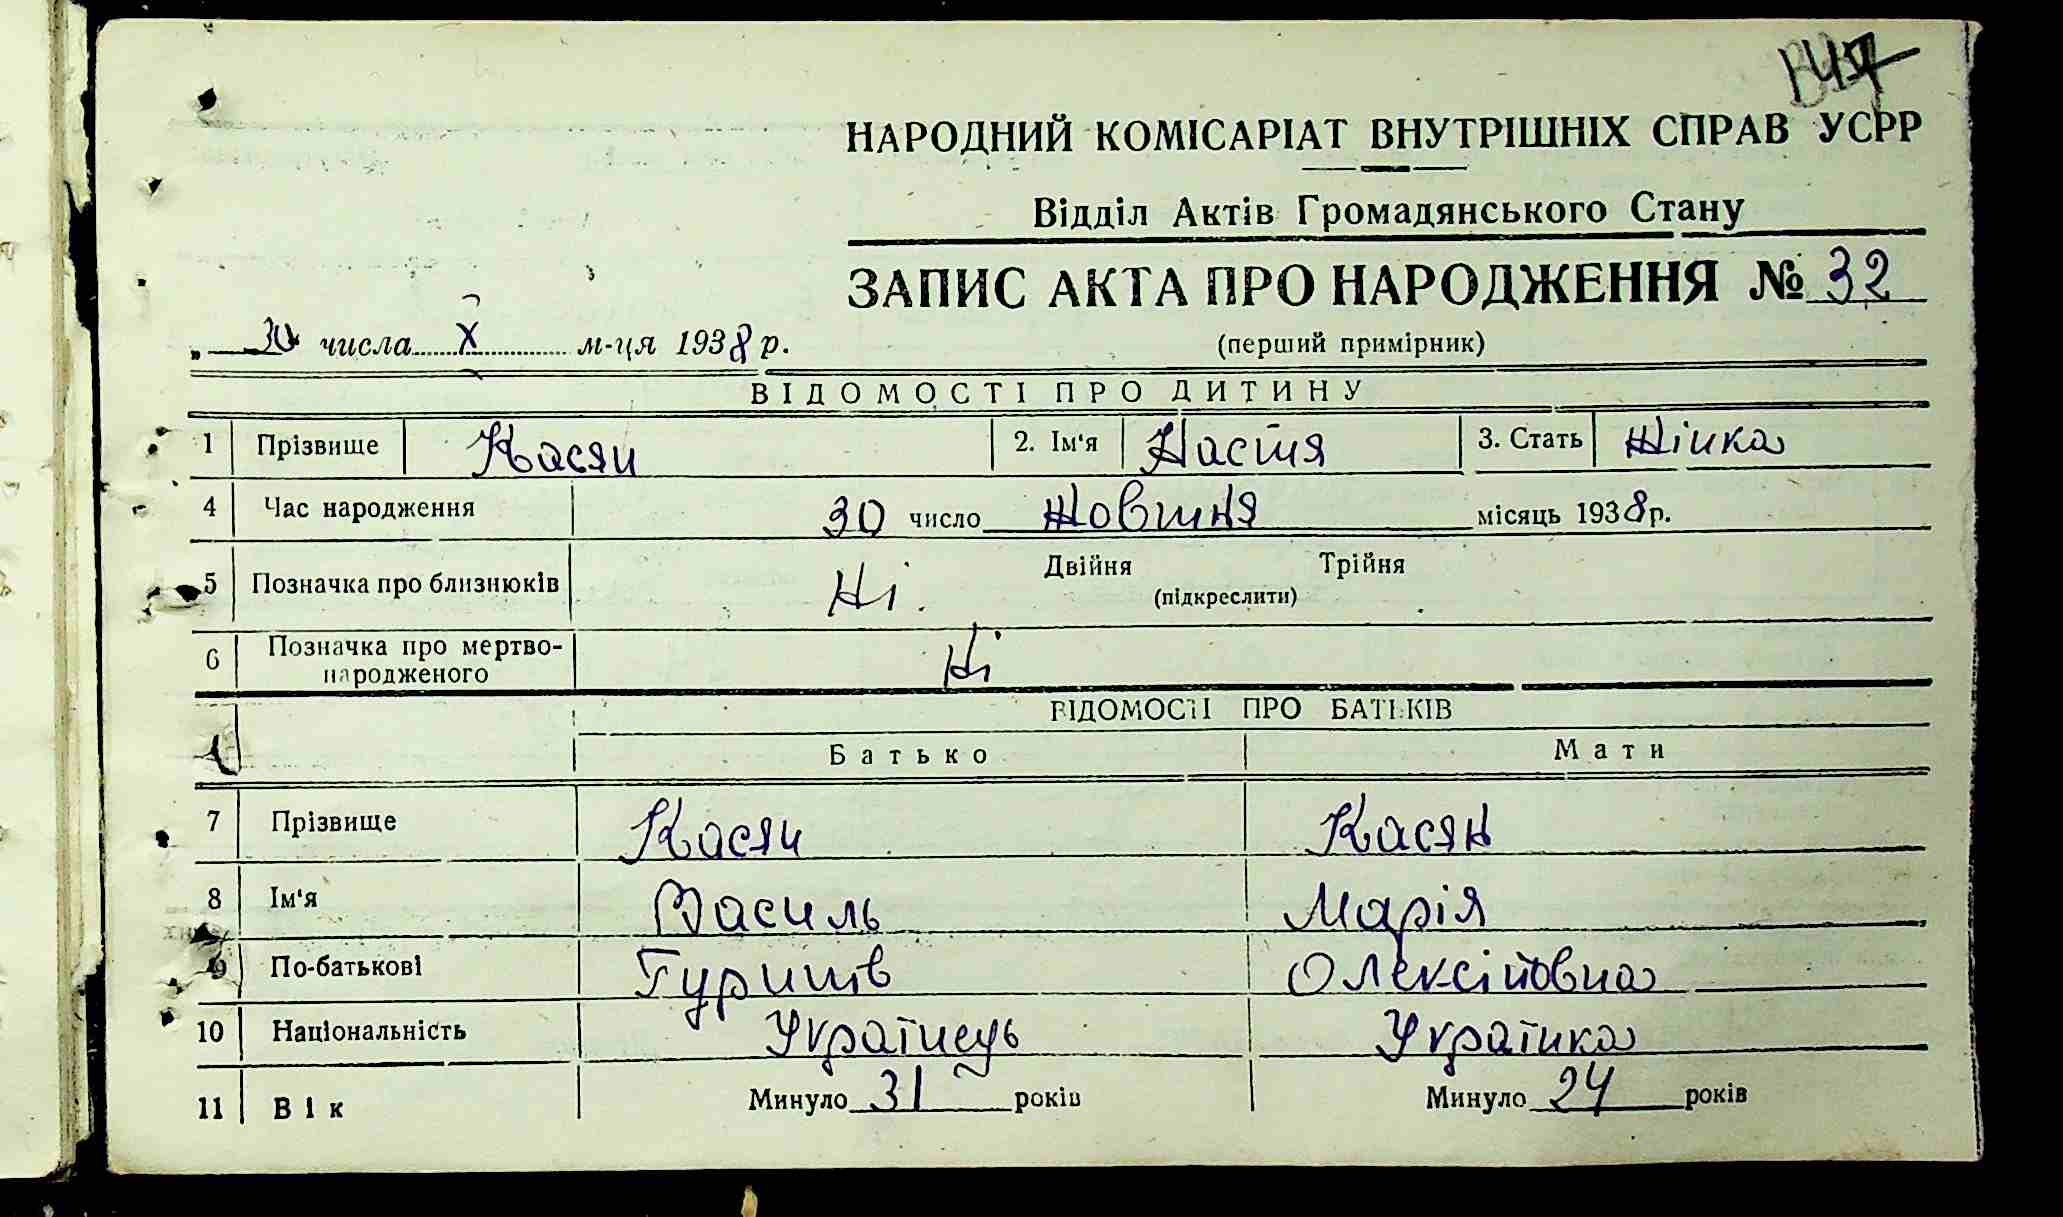 НАРОДНИЙ КОМІСАРІАТ ВНУТРІШНІХ СПРАВ УСРР
Відділ Актів Громадянського Стану
ЗАПИС АКТА ПРО НАРОДЖЕННЯ № 32
„ 30 числа X м-ця 1938 р.
(перший примірник)
ВІДОМОСТІ ПРО ДИТИНУ
1 Прізвище Касян 2. Ім'я Настя 3. Стать Жінка
4 Час народження 30 число Жовтня місяць 1938 р.
5 Позначка про близнюків Ні. Двійня Трійня
(підкреслити)
6 Позначка про мертво-
народженого Ні
ВІДОМОСТІ ПРО БАТЬКІВ
Батько Мати
7 Прізвище Касян Касян
8 Ім'я Василь Марія
9 По-батькові Олексійовна
10 Національність Українець Українка
11 Вік Минуло 31 років Минуло 24 років